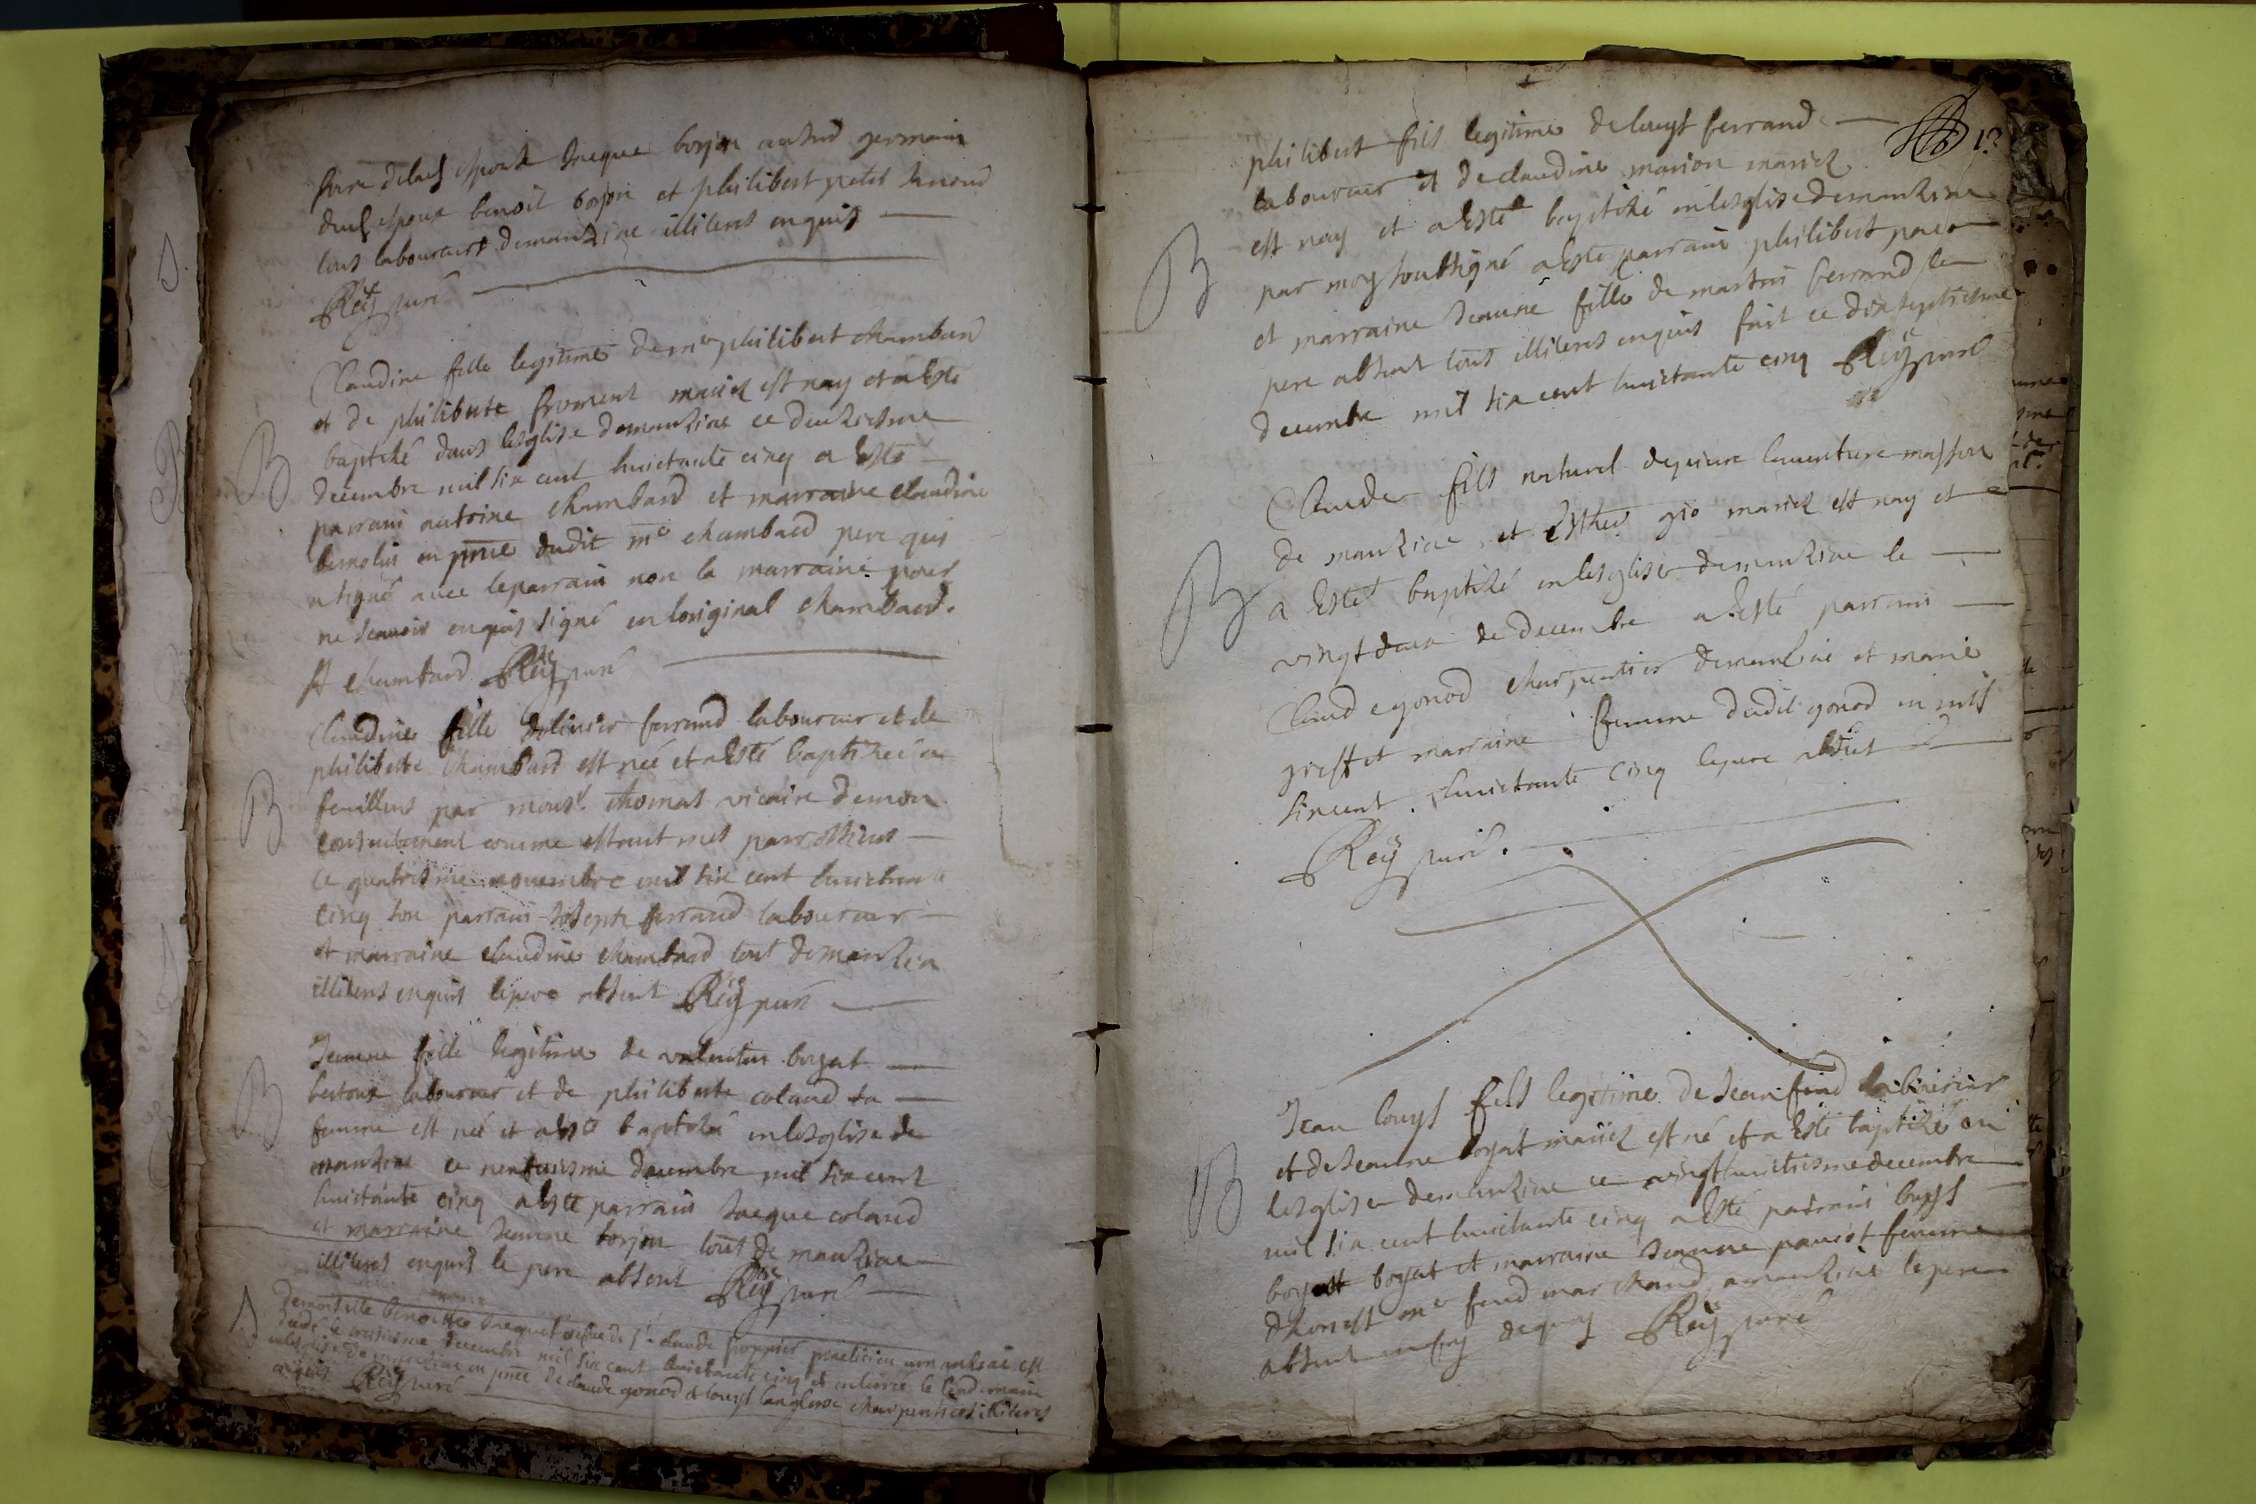 frere delad espouse Jacque borjon cousin germain
dud espoux benoit borjon et philibert petit Janoud
tous laboureurs demanziac illiteres enquis
Reÿ curé
Claudine fille legitime de me philibert chambard
et de philiberte froment mariez est nay et a esté
B
baptizé dans lesglise demanziac ce deuxiesme
decembre mil six cent huictante cinq a esté
parrain antoine chambard et marraine claudine
en pnce dudit me chambard pere qui
a signé avec le parrain non la marraine pour
ne scavoir enquis signé en loriginal chambard.
A chambard Reÿ curé
Claudine fille dolivier ferrand laboureur et de
philiberte chambard est née et a esté baptizée a
B
feuillens par monsr. thomas vicaire de mon
consentement comme estant mes parrossiens
ce quatriesme novembre mil six cent huictante
cinq son parrain Joseph ferrand laboureur
et marraine claudine chambard tous demanzia
illiteres enquis le pere absent Reÿ curé
Jeanne fille legitime de valentin boyat
B
laboureur et de philiberte coland sa
femme est née et a esté baptizée en lesglise de
manziac ce neufviesme decembre mil six cent
huictante cinq a esté parrain Jacque coland
et marraine Jeanne borjon tous de manziac
illiteres enquis le pere absent Reÿ curé
Demoiselle benoitte Jaequet vefve de sr claude praticien est
decedé le decembre mil six cent huictante cinq et enterrée le lendemain
en lesglise de manziac en pnce de claude gonod et louys charpentiers illiteres
enquis Reÿ curé
philibert fils legitime de louys ferrand
laboureur et de claudine marion mariez
est nay et a esté baptizé en lesglise demanziac
B
par moy soubsigné a esté parrain philibert
et marraine Jeanne fille de martin ferrand le
pere absent tous illiteres enquis fait ce dixseptiesme
decembre mil six cent huictante cinq Reÿ curé
Claude fils naturel de pierre laventure masson
de manziac et esther mariez est nay et
B
a esté baptizé en lesglise demanziac le
vingt deux de decembre a esté parrain
Claude gonod charpentier demanziac et marie
et marraine femme dudit gonod mil
six cent huictante cinq le pere absent
Reÿ curé.
Jean louys fils legitime de Jean laboureur
et de Jeanne boyat mariez est né et a esté baptizé en
B
lesglise demanziac ce vingt huictiesme decembre
mil six cent huictante cinq a esté parrain louys
boyat et marraine Jeanne femme
dhonest me marchand a manziac le pere
absent en foy dequoy Reÿ curé